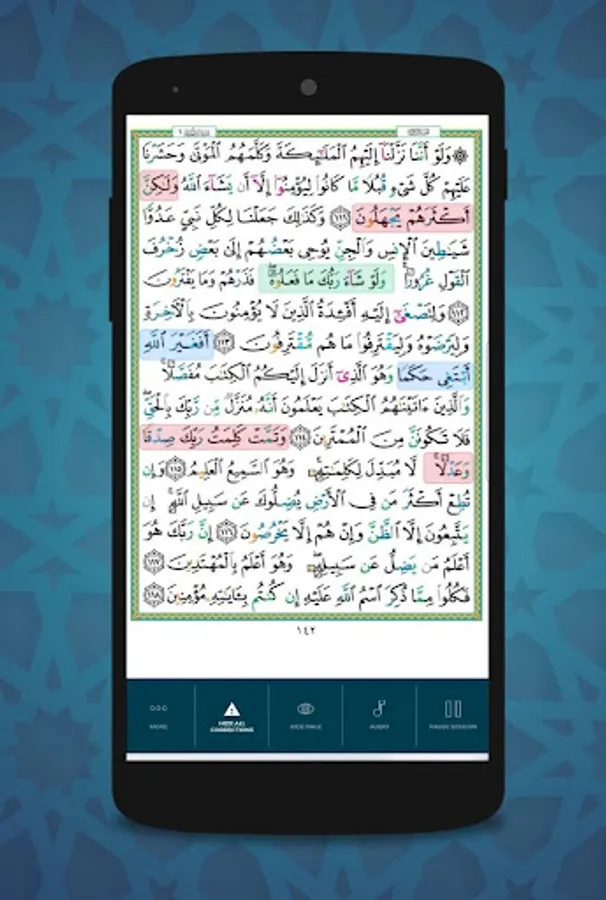 ۞ وَلَوْ أَنَّنَا نَزَّلْنَآ إِلَيْهِمُ ٱلْمَلَٰٓئِكَةَ وَكَلَّمَهُمُ ٱلْمَوْتَىٰ وَحَشَرْنَا
عَلَيْهِمْ كُلَّ شَىْءٍ قُبُلًا مَّا كَانُوا۟ لِيُؤْمِنُوٓا۟ إِلَّآ أَن يَشَآءَ ٱللَّهُ وَلَٰكِنَّ
أَكْثَرَهُمْ يَجْهَلُونَ ١١١ وَكَذَٰلِكَ جَعَلْنَا لِكُلِّ نَبِىٍّ عَدُوًّا
شَيَٰطِينَ ٱلْإِنسِ وَٱلْجِنِّ يُوحِى بَعْضُهُمْ إِلَىٰ بَعْضٍ زُخْرُفَ
ٱلْقَوْلِ غُرُورًا ۚ وَلَوْ شَآءَ رَبُّكَ مَا فَعَلُوهُ ۖ فَذَرْهُمْ وَمَا يَفْتَرُونَ
١١٢ وَلِتَصْغَىٰٓ إِلَيْهِ أَفْـِٔدَةُ ٱلَّذِينَ لَا يُؤْمِنُونَ بِٱلْءَاخِرَةِ
وَلِيَرْضَوْهُ وَلِيَقْتَرِفُوا۟ مَا هُم مُّقْتَرِفُونَ ١١٣ أَفَغَيْرَ ٱللَّهِ
أَبْتَغِى حَكَمًا وَهُوَ ٱلَّذِىٓ أَنزَلَ إِلَيْكُمُ ٱلْكِتَٰبَ مُفَصَّلًا ۚ
وَٱلَّذِينَ ءَاتَيْنَٰهُمُ ٱلْكِتَٰبَ يَعْلَمُونَ أَنَّهُۥ مُنَزَّلٌ مِّن رَّبِّكَ بِٱلْحَقِّ ۖ
فَلَا تَكُونَنَّ مِنَ ٱلْمُمْتَرِينَ ١١٤ وَتَمَّتْ كَلِمَتُ رَبِّكَ صِدْقًا
وَعَدْلًا ۚ لَّا مُبَدِّلَ لِكَلِمَٰتِهِۦ ۚ وَهُوَ ٱلسَّمِيعُ ٱلْعَلِيمُ ١١٥ وَإِن
تُطِعْ أَكْثَرَ مَن فِى ٱلْأَرْضِ يُضِلُّوكَ عَن سَبِيلِ ٱللَّهِ ۚ إِن
يَتَّبِعُونَ إِلَّا ٱلظَّنَّ وَإِنْ هُمْ إِلَّا يَخْرُصُونَ ١١٦ إِنَّ رَبَّكَ هُوَ
أَعْلَمُ مَن يَضِلُّ عَن سَبِيلِهِۦ ۖ وَهُوَ أَعْلَمُ بِٱلْمُهْتَدِينَ ١١٧
فَكُلُوا۟ مِمَّا ذُكِرَ ٱسْمُ ٱللَّهِ عَلَيْهِ إِن كُنتُم بِـَٔايَٰتِهِۦ مُؤْمِنِينَ ١١٨
١٤٢
MORE
HIDE ALL
CORRECTIONS
HIDE PAGE
AUDIO
PAUSE SESSION